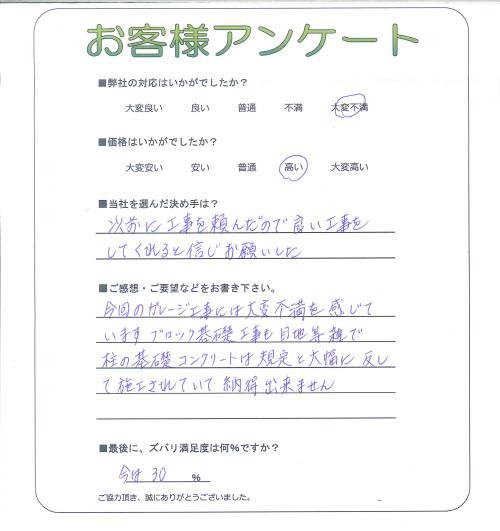 お客様アンケート
■弊社の対応はいかがでしたか？
大変良い 良い 普通 不満 大変不満
■価格はいかがでしたか？
大変安い 安い 普通 高い 大変高い
■当社を選んだ決め手は？
以前に工事を頼んだので良い工事を
してくれると信じお願いした
■ご感想・ご要望などをお書き下さい。
今回のガレージ工事には大変不満を感じて
います ブロック基礎工事も目地等雑で
柱の基礎コンクリートは規定と大幅に反し
て施工されていて納得出来ません
■最後に、ズバリ満足度は何%ですか？
今は 30 %
ご協力頂き、誠にありがとうございました。